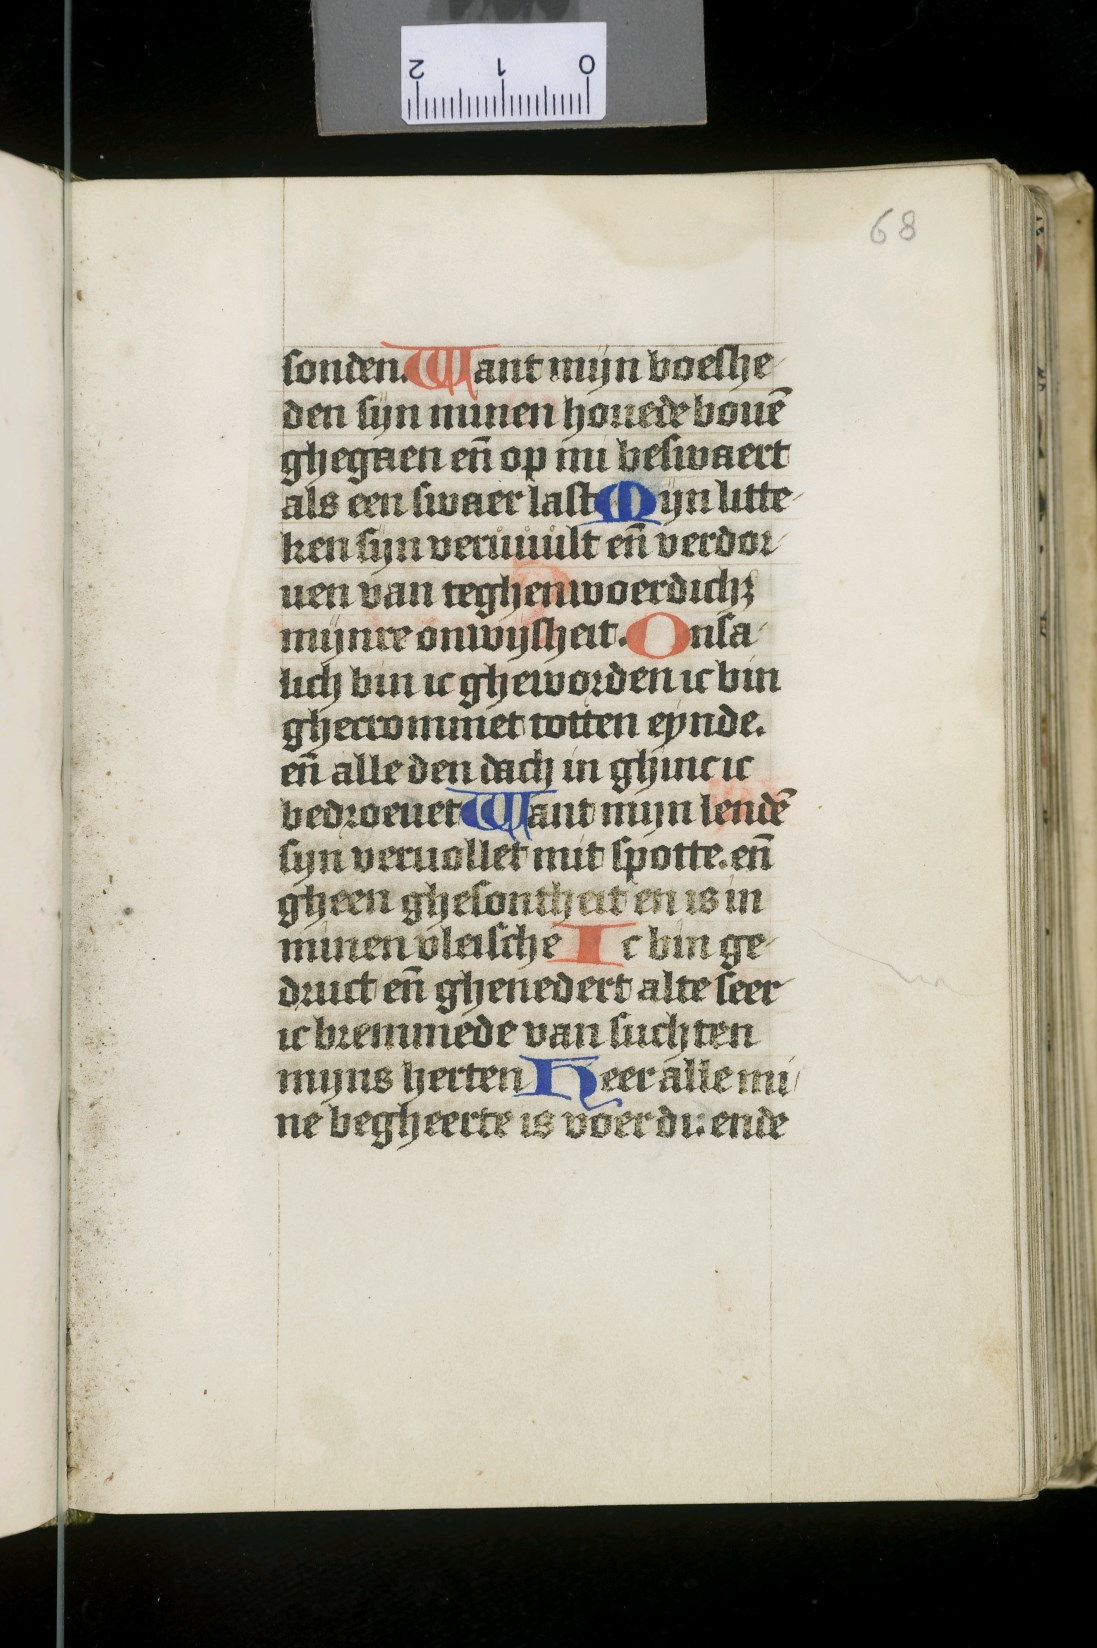 2 1 0
68
sonden. Want mijn boeshe
den sijn minen houede bouē
ghegaen eñ op mi beswaert
als een swaer last Mijn litte
ken sijn veruuult eñ verdor
uen van teghenwoerdichꝫ
mijnre onwijsheit. Onsa
lich bin ic gheworden ic bin
ghecrommet totten eynde.
eñ alle den dach in ghinc ic
bedroeuet Want mijn lendē
sijn veruollet mit spotte. eñ
gheen ghesontheit en is in
minen vleische Ic bin ge
druct eñ ghenedert alte seer
ic bremmede van suchten
mijns herten Heer alle mi
ne begheerte is voer di: ende